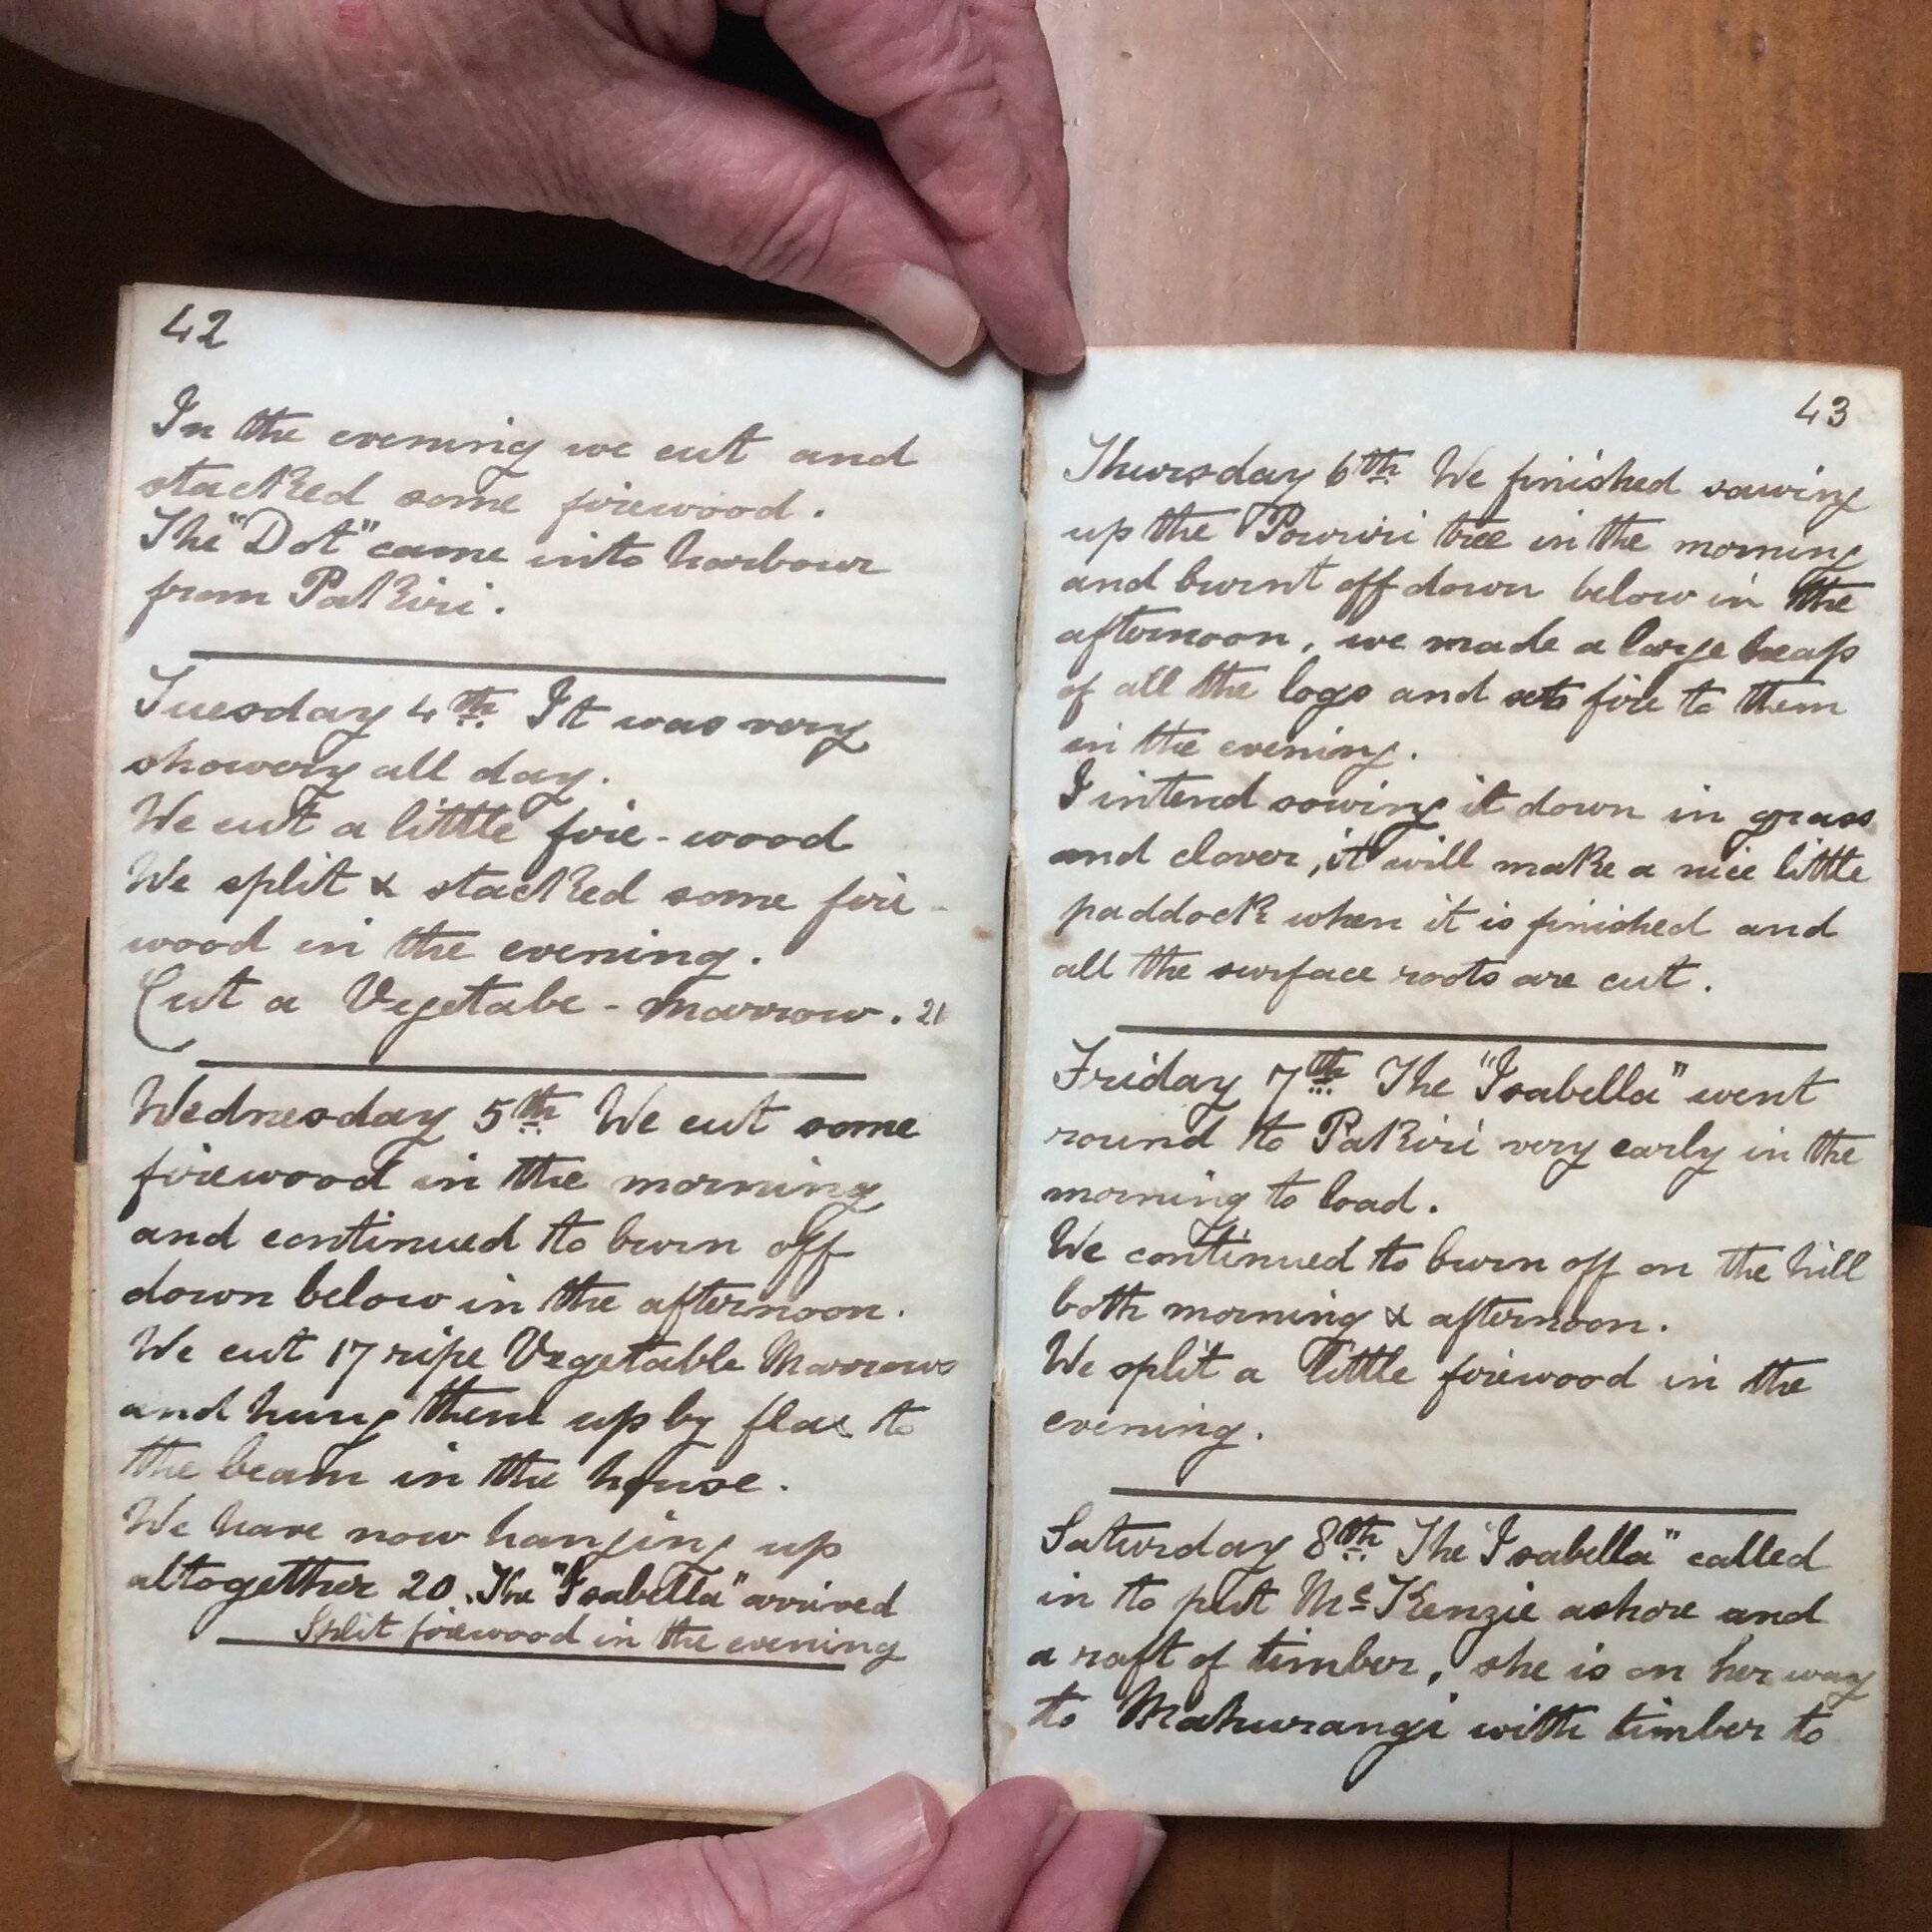 42
In the evening we cut and
stacked some firewood.
The "Dot" came into harbour
from Pakiri.
Tuesday 4th. It was very
showery all day.
We cut a little fire-wood
We split & stacked some fire-
wood in the evening.
Cut a Vegetabe-Marrow. 21
Wednesday 5th. We cut some
firewood in the morning
and continued to burn off
down below in the afternoon.
We cut 17 ripe Vegetable Marrows
and hung them up by flax to
the beam in the house.
We have now hanging up
altogether 20. The "Isabella" arrived
Split firewood in the evening
43
Thursday 6th. We finished sawing
up the Powriri tree in the morning
and burnt off down below in the
afternoon, we made a large heap
of all the logs and set fire to them
in the evening.
I intend sowing it down in grass
and clover, it will make a nice little
paddock when it is finished and
all the surface roots are cut.
Friday 7th. The "Isabella" went
round to Pakiri very early in the
morning to load.
We continued to burn off on the hill
both morning & afternoon.
We split a little firewood in the
evening.
Saturday 8th. The "Isabella" called
in to put McKenzie ashore and
a raft of timber, she is on her way
to Mahurangi with timber to